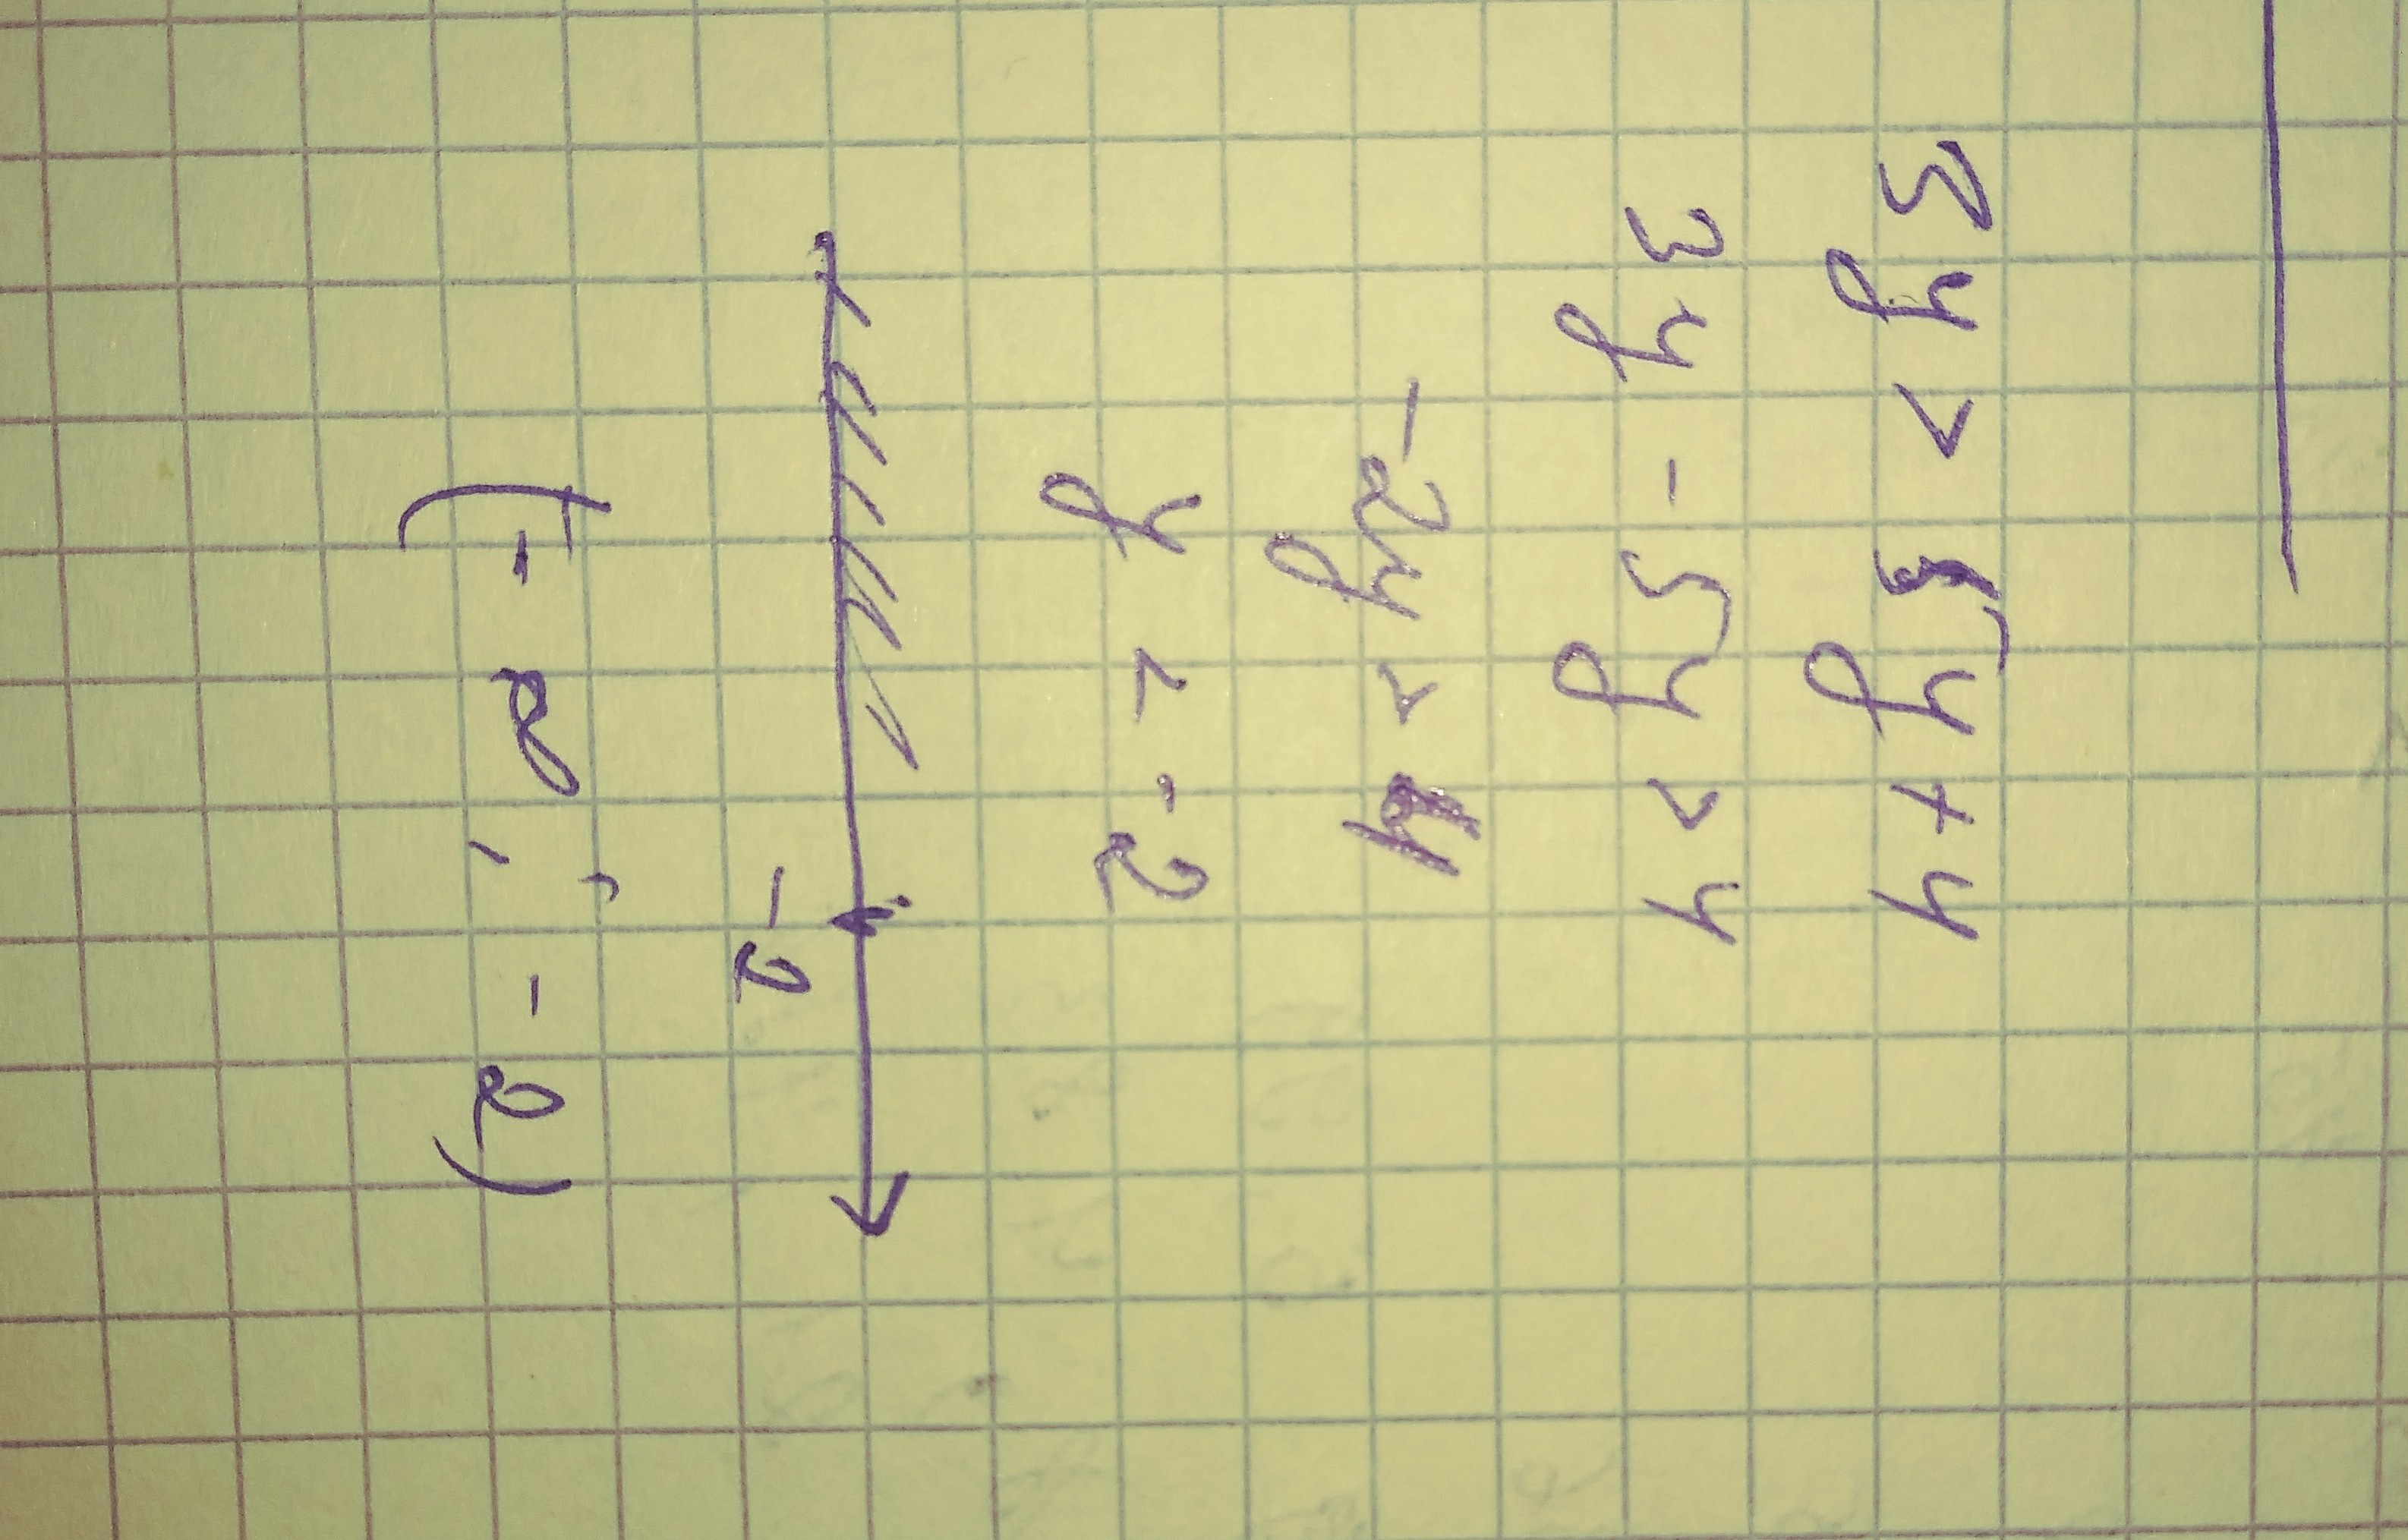 3y > 5y + 4
3y - 5y > 4
-2y > 4
y < -2
-2
(-∞; -2)